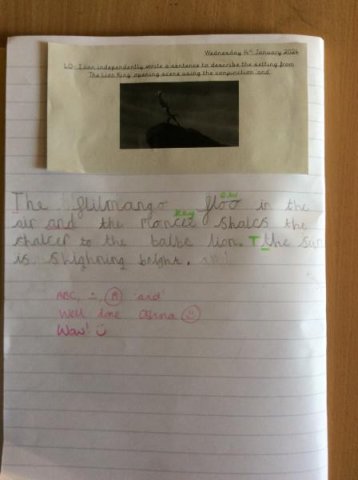 Wednesday 4th January 2024
LO: I can independently write a sentence to describe the setting from
The Lion King opening scene using the conjunction 'and'.
The flilmango floo in the
air and the moncee shakes the
shalcer to the baibe lion. T the sun
is shighning bright.
ABC, 'and'
Well done
Wow!